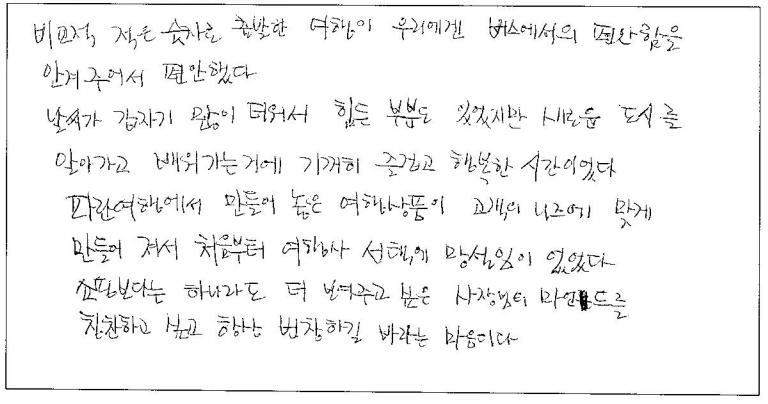 비교적, 적은 숫자로 출발한 여행이 우리에겐 버스에서의 편안함을
안겨주어서 편안했다
날씨가 갑자기 많이 더워서 힘든 부분도 있었지만 새로운 도시를
알아가고 배워가는거에 기꺼히 즐겁고 행복한 시간이었다
파란여행에서 만들어 놓은 여행상품이 고객의 니즈에 맞게
만들어 져서 처음부터 여행사 선택에 망설임이 없었다
쇼핑보다는 하나라도 더 보여주고 싶은 사장님의 마인드를
칭찬하고 싶고 항상 번창하길 바라는 마음이다